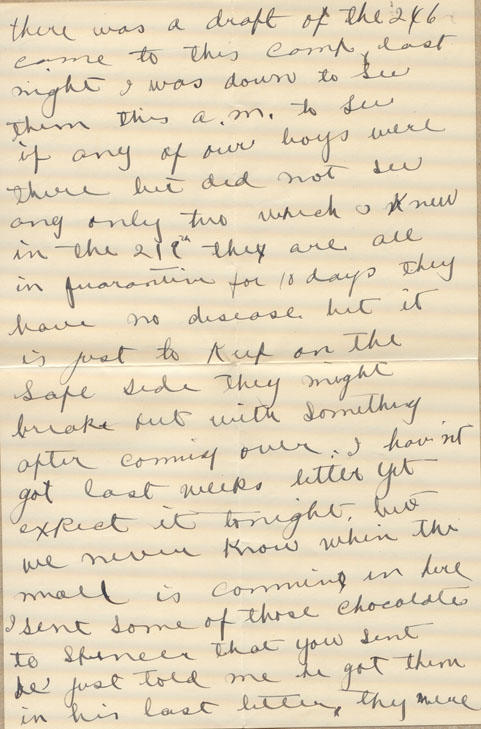 there was a draft of the 246
came to this camp last
night I was down to see
them this a.m. to see
if any of our boys were
there but did not see
any only two which I knew
in the 219th they are all
in quarantine for 10 days they
have no disease but it
is just to keep on the
safe side they might
breake out with something
after coming over. I hav'nt
got last weeks letter yet
expect it tonight, but
we never know when the
mall is comming in here
I sent some of those chocolates
to Spencer that you sent
he just told me he got them
in his last letter, they were